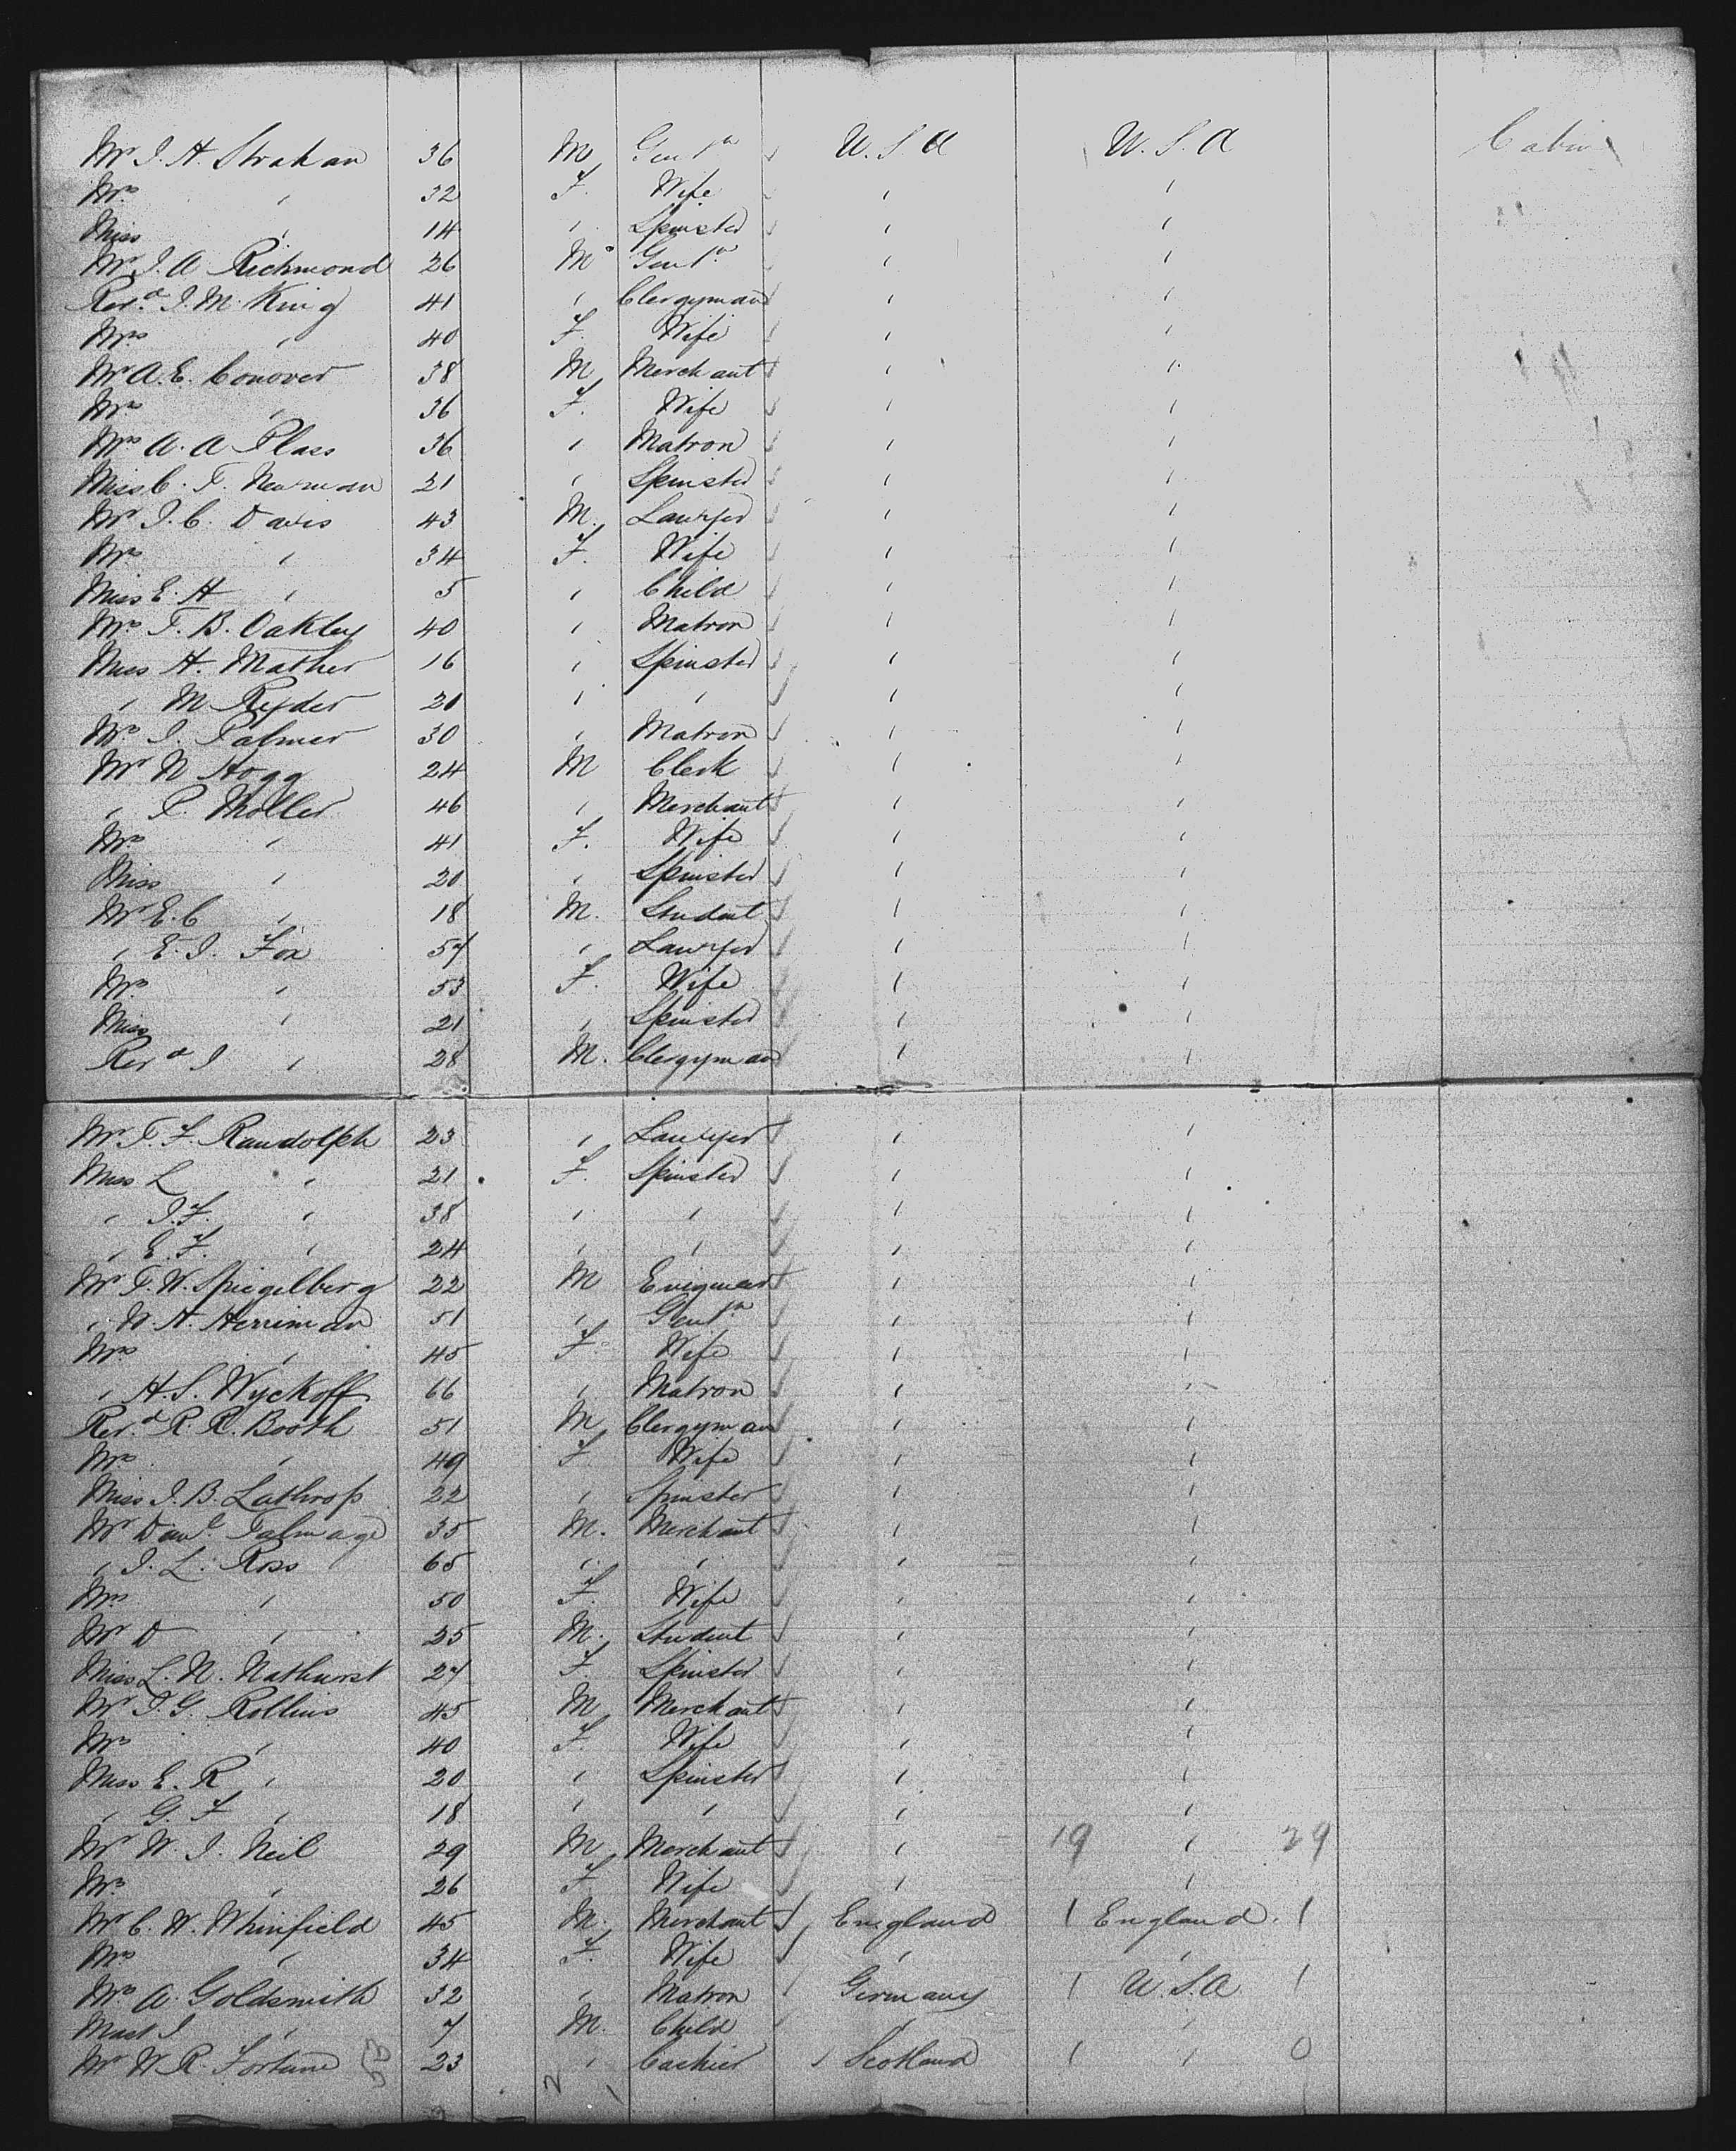 Mr J. A. Strahan 36 M Gentn U.S.A U.S.A Cabin
Mrs " 32 F. Wife " "
Miss " 14 " Spinster " "
Mr J. A Richmond 26 M Gentn " "
Revd J. M. King 41 " Clergyman " "
Mrs " 40 F. Wife " "
Mr A. E. Conover 38 M Merchant " "
Mrs " 36 F. Wife " "
Mrs A. A Plass 36 " Matron " "
Miss C. F. Newman 21 " Spinster " "
Mr J. C. Davis 43 M. Lawyer " "
Mrs " 34 F. Wife " "
Miss E. H " 5 " Child " "
Mrs T. B. Oakley 40 " Matron " "
Miss H. Mather 16 " Spinster " "
" M Ryder 20 " " " "
Mrs J. Palmer 30 " Matron " "
Mr N Hogg 24 M Clerk " "
" P. Moller 46 " Merchant " "
Mrs " 41 F. Wife " "
Miss " 20 " Spinster " "
Mr E. C " 18 M. Student " "
" E. J. Fox 57 " Lawyer " "
Mrs " 53 F. Wife " "
Miss " 21 " Spinster " "
Revd J " 28 M. Clergyman " "
Mr T. F. Randolph 23 " Lawyer " "
Miss L " 21 F. Spinster " "
" J. F. " 38 " " " "
" E. F. " 24 " " " "
Mr F. W. Spiegelberg 22 M Engineer " "
" W. A. Herriman 51 " Gentn " "
Mrs " 45 F. Wife " "
" H. S. Wyckoff 66 " Matron " "
Revd R. R. Booth 51 M Clergyman " "
Mrs " 49 F. Wife " "
Miss J. B. Lathrop 22 " Spinster " "
Mr Danl Talmage 35 M. Merchant " "
" J. L. Ross 65 " " " "
Mrs " 50 F. Wife " "
Mr D " 25 M. Student " "
Miss L. N. Nathurst 27 F. Spinster " "
Mr J. G Rollins 45 M Merchant " "
Mrs " 40 F. Wife " "
Miss E. R " 20 " Spinster " "
" G. F " 18 " " " "
Mr W. J. Neil 29 M Merchant " 19 " 29
Mrs " 26 F. Wife " "
Mr C. W. Whinfield 45 M. Merchant England 1 England. 1
Mrs " 34 F. Wife " "
Mrs A. Goldsmith 32 " Matron Germany 1 U.S.A 1
Mast J " 7 M. Child " "
Mr W. R. Fortune 23 " Cashier Scotland 1 " 0